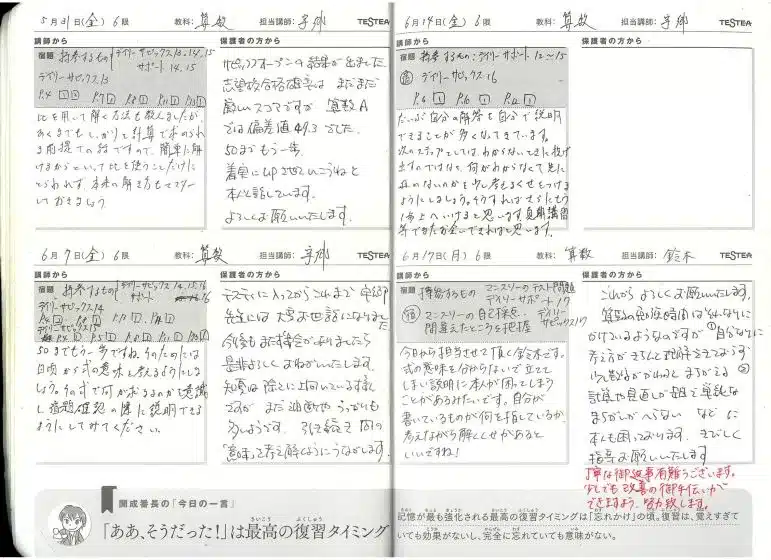 5月31日(金) 6限 教科: 算数 担当講師: 宇郷 TESTEA
講師から
保護者の方から
宿題 持参するもの デイリーサピックス13.14.15
サポート 14.15
デイリーサピックス13
比を用いて解く方法も教えましたが、
あくまでもしっかりと計算で求められ
る前提での話ですので、簡単に解
けるからといって比を使うことだけに
とらわれず、本来の解き方もマスター
しておきましょう
サピックスオープンの結果が出ました
志望校合格確率は まだまだ
厳しいスコアですが 算数A
では偏差値49.3でした。
50までもう一歩。
着実にUPさせていこうねと
本人と話しています。
よろしくお願いいたします。
6月7日(金) 6限 教科: 算数 担当講師: 宇郷 TESTEA
講師から
保護者の方から
宿題 持参するもの デイリーサピックス 14.15.16
サポート 16
デイリーサピックス14
デイリーサピックス15
50までもう一歩ですね。そのためには
日頃から式の意味を考えるようにしま
しょう。その式で何が求まるのかを意識
し宿題確認の際に説明できる
ようにしてみてください。
テスティーに入ってからこれまで 宇郷
先生には大変お世話になりました
今後もまた機会がありましたら
是非よろしくおねがいいたします。
知夏は徐々に上向いている様
ですが まだ油断や うっかりも
多しようです。引き続き 問の
「意味」を考え解くようにうながします。
6月14日(金) 6限 教科: 算数 担当講師: 宇郷 TESTEA
講師から
保護者の方から
宿題 持参するもの:デイリーサポート 12〜15
宿 デイリーサピックス16
だいぶ自分の解答を自分で説明
できることが多くなってきています。
次のステップとしては、わからないときに投げ
出すのではなく、何がわからなくて先に
進めないのかを少し考えるくせをつける
ようにしましょう。そうすればさらにもう
1歩上へいけると思います。夏期講習
等でまた会いできればと思います。
6月17日(月) 6限 教科: 算数 担当講師: 鈴木 TESTEA
講師から
保護者の方から
宿題 持参するもの マンスリーのテスト問題
デイリーサポート17
デイリーサピックス17
宿 マンスリーの自己採点
間違えたところを把握
今日から担当させて頂く鈴木です。
式の意味を分からないで立てて
しまい説明に本人が困ってしまう
ことがあるみたいです。自分が
書いているものが何を指しているか、
考えながら解くくせがあると
いいですね!
これから よろしくお願いいたします。
算数の勉強時間はかなりに
かけているようなのですが ①自分なりに
考え方がきちんと理解できておらず
少し数字がかわると まちがえる ②
計算や見直しが雑で単純な
まちがいがへらない などに
本人も困っております。きびしく
指導お願いいたします
丁寧な御返事有難うございます。
少しでも改善の御手伝いが
できますよう、努力致します。
開成番長の「今日の一言」
「ああ、そうだった!」は最高の復習タイミング
記憶が最も強化される最高の復習タイミングは「忘れかけ」の頃。復習は、覚えすぎて
いても効果がないし、完全に忘れていても意味がない。